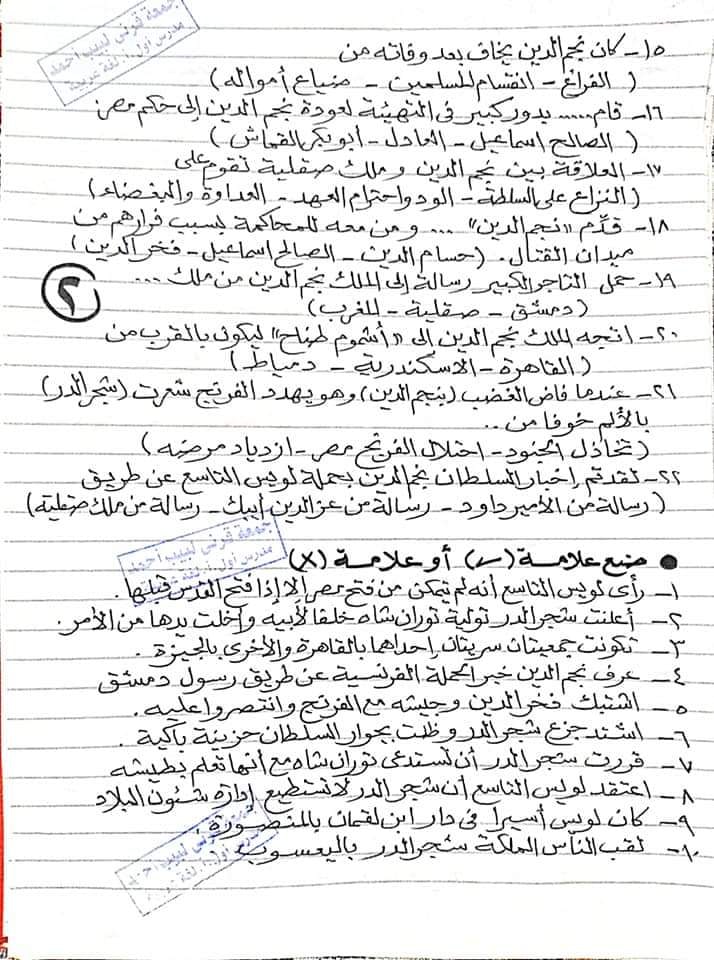 جمعة قرني لبيب أحمد
مدرس أول أ. لغة عربية
١٥- كان نجم الدين يخاف بعد وفاته من
( الفراغ - انقسام المسلمين - ضياع أمواله )
١٦- قام ..... بدور كبير فى التهيئة لعودة نجم الدين إلى حكم مصر
( الصالح اسماعيل - العادل - أبو بكر القماش )
١٧- العلاقة بين نجم الدين و ملك صقلية تقوم على
( النزاع على السلطة - الود واحترام العهد - العداوة والبغضاء )
١٨- قدّم "نجم الدين" ... و من معه للمحاكمة بسبب فرارهم من
ميدان القتال . ( حسام الدين - الصالح اسماعيل - فخر الدين )
١٩- حمل التاجر الكبير رسالة إلى الملك نجم الدين من ملك ...
( دمشق - صقلية - المغرب )
٢
٢٠- اتجه الملك نجم الدين إلى "أشموم طناح" ليكون بالقرب من
( القاهرة - الاسكندرية - دمياط )
٢١- عندما فاض الغضب (بنجم الدين) وهو يهدد الفرنج شعرت (شجر الدر)
بالألم خوفا من ..
( تخاذل الجنود - احتلال الفرنج مصر - ازدياد مرضه )
٢٢- لقد تم إخبار السلطان نجم الدين بحملة لويس التاسع عن طريق
( رسالة من الأمير داود - رسالة من عز الدين أيبك - رسالة من ملك صقلية )
جمعة قرني لبيب أحمد
مدرس أول أ. لغة عربية
● ضع علامة (✓) أو علامة (X)
١- رأى لويس التاسع أنه لم يتمكن من فتح مصر إلا إذا فتح القدس قبلها .
٢- أعلنت شجر الدر تولية توران شاه خلفا لأبيه وأخلت يدها من الأمر .
٣- تكونت جمعيتان سريتان إحداها بالقاهرة والأخرى بالجيزة .
٤- عرف نجم الدين خبر الحملة الفرنسية عن طريق رسول دمشق
٥- اشتبك فخر الدين وجيشه مع الفرنج وانتصروا عليه .
٦- اشتد جزع شجر الدر و ظلت بجوار السلطان حزينة باكية .
٧- قررت شجر الدر أن تستدعى توران شاه مع أنها تعلم بطيشه
٨- اعتقد لويس التاسع أن شجر الدر لا تستطيع إدارة شئون البلاد
٩- كان لويس أسيرا فى دار ابن لقمان بالمنصورة .
١٠- لقب الناس الملكة شجر الدر باليعسوب
جمعة قرني لبيب أحمد
مدرس أول أ. لغة